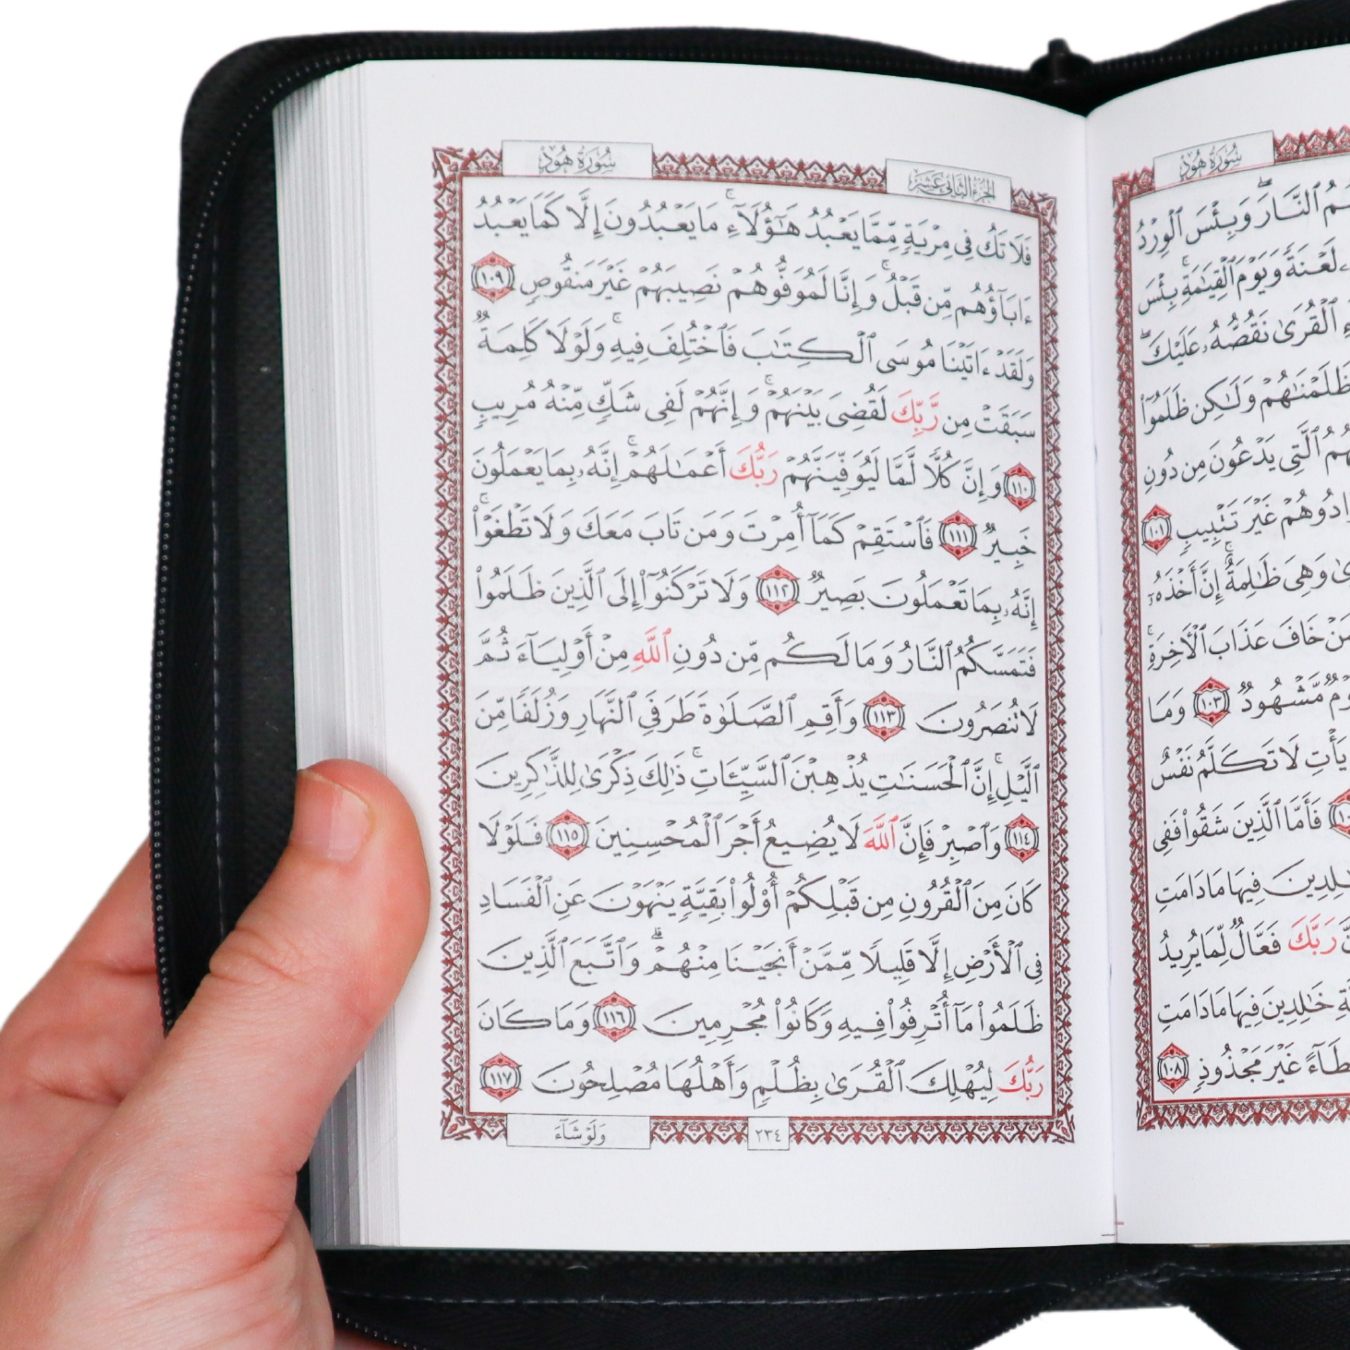 سُورَةُ هُودٍ
ٱلنَّارَ ۖ وَبِئْسَ ٱلْوِرْدُ
لَعْنَةً وَيَوْمَ ٱلْقِيَٰمَةِ ۚ بِئْسَ
ٱلْقُرَىٰ نَقُصُّهُۥ عَلَيْكَ ۖ
ظَلَمْنَٰهُمْ وَلَٰكِن ظَلَمُوٓا۟
ٱلَّتِى يَدْعُونَ مِن دُونِ
غَيْرَ تَتْبِيبٍ ١٠١
وَهِىَ ظَٰلِمَةٌ ۚ إِنَّ أَخْذَهُۥٓ
خَافَ عَذَابَ ٱلْـَٔاخِرَةِ ۚ
مَّشْهُودٌ ١٠٣ وَمَا
يَأْتِ لَا تَكَلَّمُ نَفْسٌ
فَأَمَّا ٱلَّذِينَ شَقُوا۟ فَفِى
فِيهَا مَا دَامَتِ
رَبَّكَ فَعَّالٌ لِّمَا يُرِيدُ
خَٰلِدِينَ فِيهَا مَا دَامَتِ
غَيْرَ مَجْذُوذٍ ١٠٨
الجزء الثاني عشر
سُورَةُ هُودٍ
فَلَا تَكُ فِى مِرْيَةٍ مِّمَّا يَعْبُدُ هَٰٓؤُلَآءِ ۚ مَا يَعْبُدُونَ إِلَّا كَمَا يَعْبُدُ
ءَابَآؤُهُم مِّن قَبْلُ ۚ وَإِنَّا لَمُوَفُّوهُمْ نَصِيبَهُمْ غَيْرَ مَنقُوصٍ ١٠٩
وَلَقَدْ ءَاتَيْنَا مُوسَى ٱلْكِتَٰبَ فَٱخْتُلِفَ فِيهِ ۚ وَلَوْلَا كَلِمَةٌ
سَبَقَتْ مِن رَّبِّكَ لَقُضِىَ بَيْنَهُمْ ۚ وَإِنَّهُمْ لَفِى شَكٍّ مِّنْهُ مُرِيبٍ
١١٠ وَإِنَّ كُلًّا لَّمَّا لَيُوَفِّيَنَّهُمْ رَبُّكَ أَعْمَٰلَهُمْ ۚ إِنَّهُۥ بِمَا يَعْمَلُونَ
خَبِيرٌ ١١١ فَٱسْتَقِمْ كَمَآ أُمِرْتَ وَمَن تَابَ مَعَكَ وَلَا تَطْغَوْا۟ ۚ
إِنَّهُۥ بِمَا تَعْمَلُونَ بَصِيرٌ ١١٢ وَلَا تَرْكَنُوٓا۟ إِلَى ٱلَّذِينَ ظَلَمُوا۟
فَتَمَسَّكُمُ ٱلنَّارُ وَمَا لَكُم مِّن دُونِ ٱللَّهِ مِنْ أَوْلِيَآءَ ثُمَّ
لَا تُنصَرُونَ ١١٣ وَأَقِمِ ٱلصَّلَوٰةَ طَرَفَىِ ٱلنَّهَارِ وَزُلَفًا مِّنَ
ٱلَّيْلِ ۚ إِنَّ ٱلْحَسَنَٰتِ يُذْهِبْنَ ٱلسَّيِّـَٔاتِ ۚ ذَٰلِكَ ذِكْرَىٰ لِلذَّٰكِرِينَ
١١٤ وَٱصْبِرْ فَإِنَّ ٱللَّهَ لَا يُضِيعُ أَجْرَ ٱلْمُحْسِنِينَ ١١٥ فَلَوْلَا
كَانَ مِنَ ٱلْقُرُونِ مِن قَبْلِكُمْ أُو۟لُوا۟ بَقِيَّةٍ يَنْهَوْنَ عَنِ ٱلْفَسَادِ
فِى ٱلْأَرْضِ إِلَّا قَلِيلًا مِّمَّنْ أَنجَيْنَا مِنْهُمْ ۗ وَٱتَّبَعَ ٱلَّذِينَ
ظَلَمُوا۟ مَآ أُتْرِفُوا۟ فِيهِ وَكَانُوا۟ مُجْرِمِينَ ١١٦ وَمَا كَانَ
رَبُّكَ لِيُهْلِكَ ٱلْقُرَىٰ بِظُلْمٍ وَأَهْلُهَا مُصْلِحُونَ ١١٧
٢٣٤
وَلَوْ شَآءَ